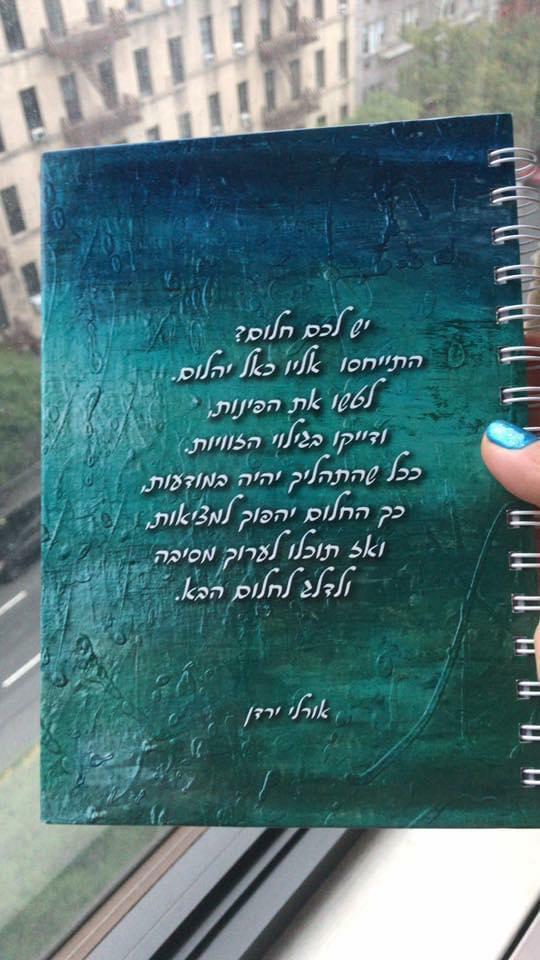 יש לכם חלום?
התייחסו אליו כאל יהלום.
לטשו את הפינות,
ודייקו בגילוי הזוויות.
ככל שהתהליך יהיה במודעות,
כך החלום יהפוך למציאות,
ואז תוכלו לערוך מסיבה
ולדלג לחלום הבא.
אורלי ירדן